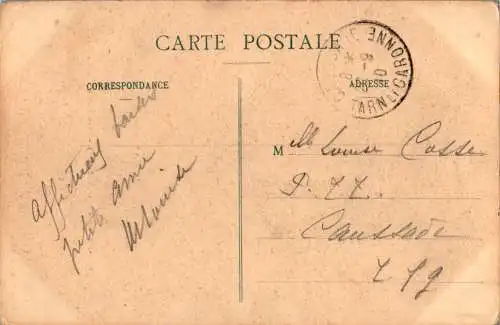 CARTE POSTALE
CORRESPONDANCE
ADRESSE
TARN ET GARONNE
Affectueux
petite amie
M lle Louise Cosse
P.TT.
Caussade
T g